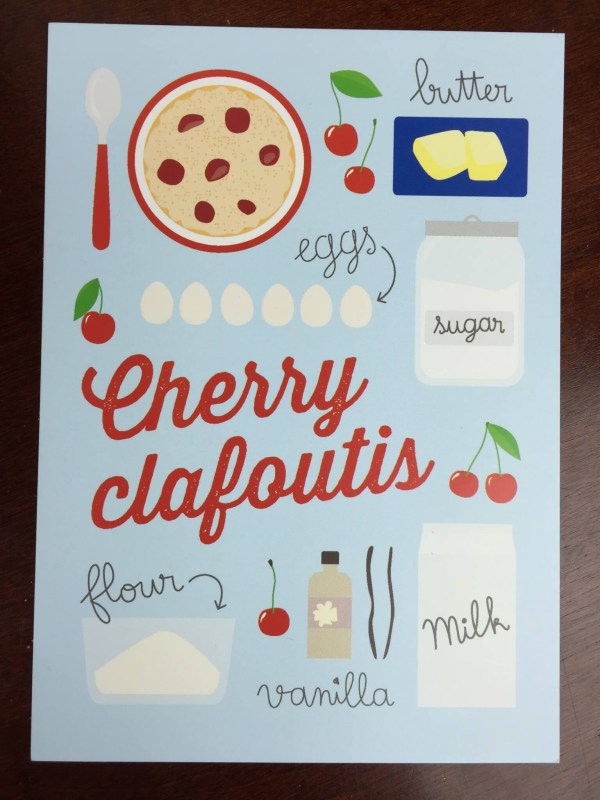 butter
eggs
sugar
Cherry
clafoutis
flour
milk
vanilla